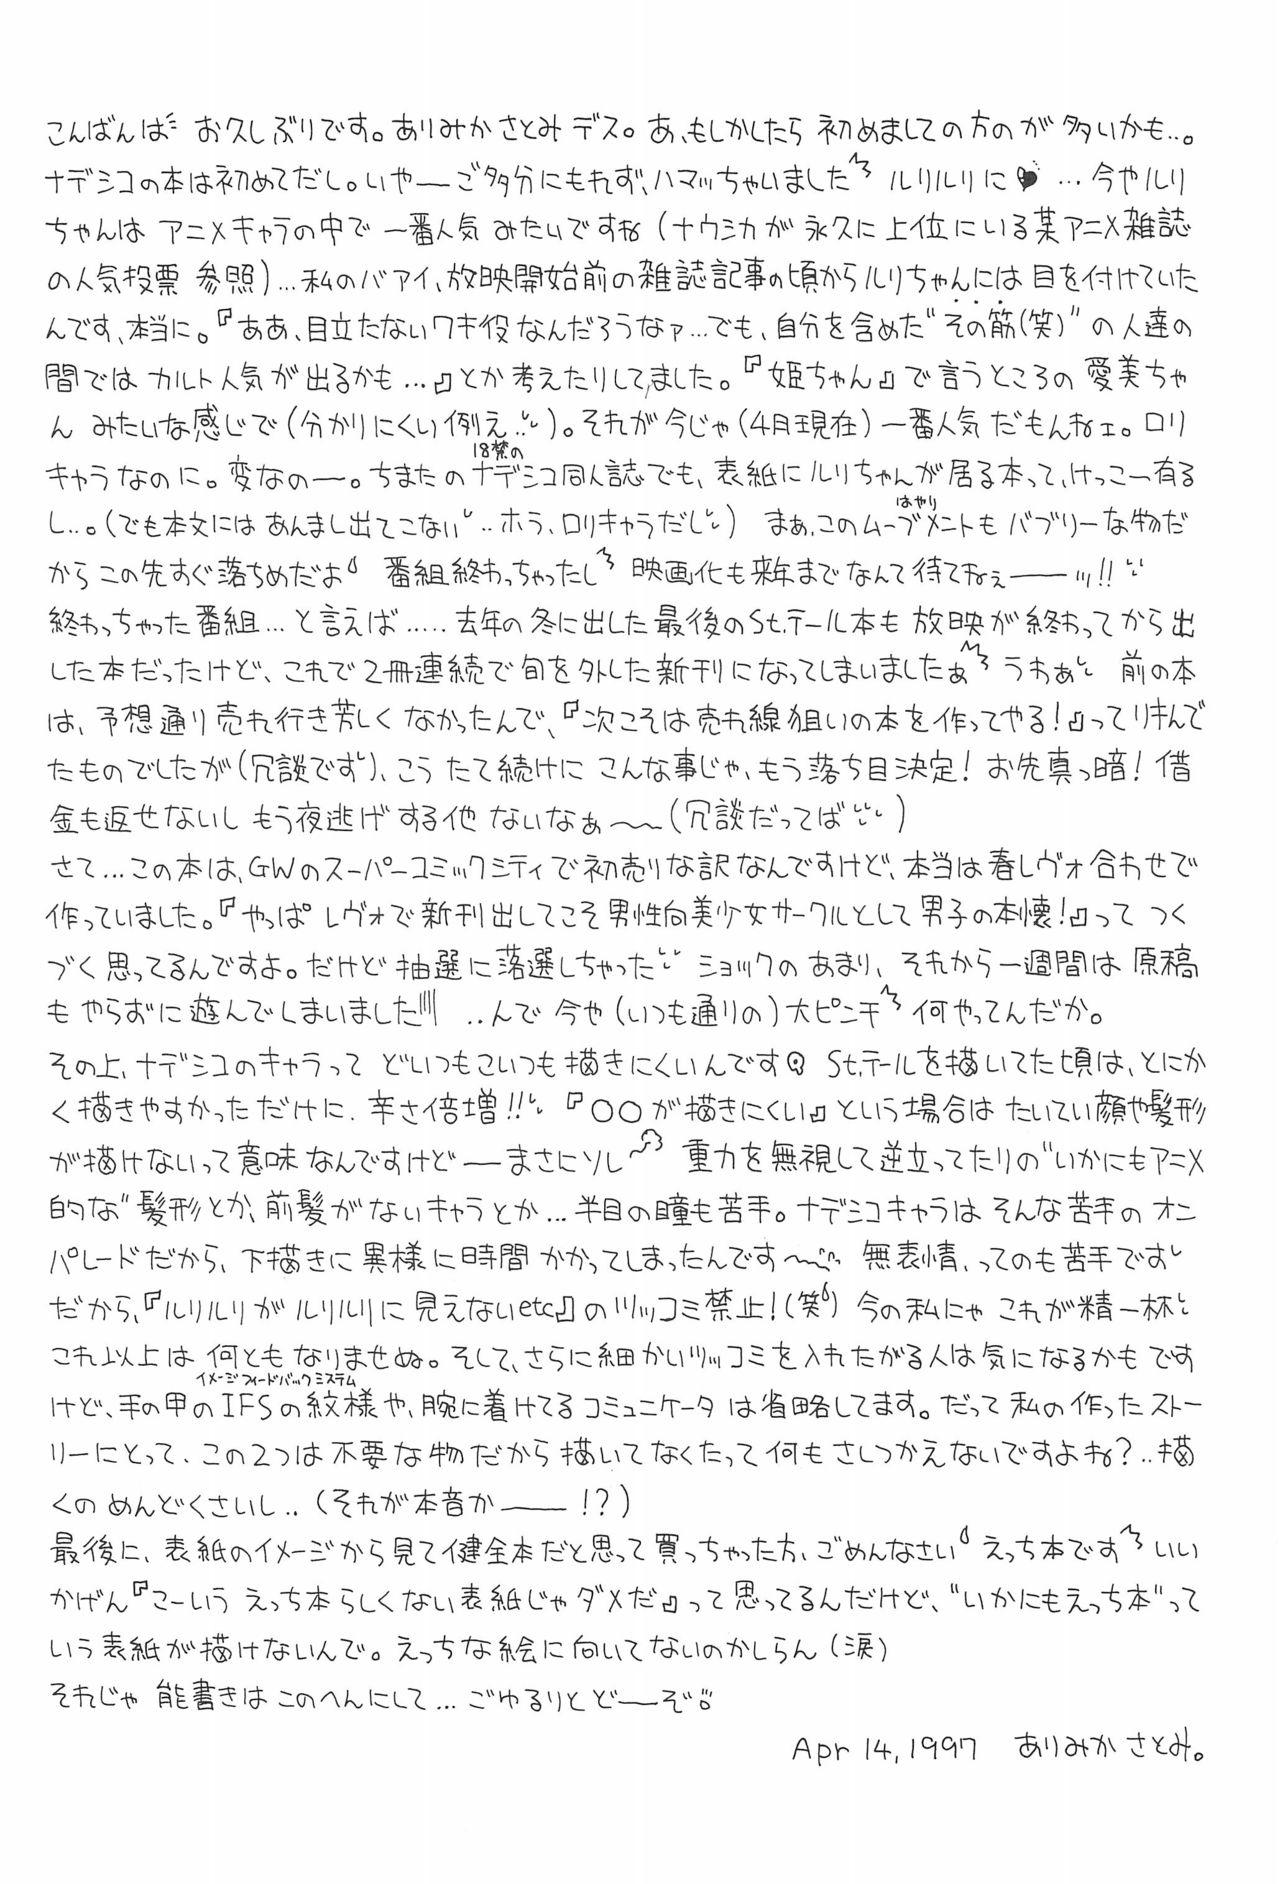 こんばんは お久しぶりです。ありみかさとみデス。あ、もしかしたら 初めましての方のが多いかも‥。
ナデシコの本は初めてだし。いや――ご多分にもれず、ハマッちゃいました ルリルリに♥ …今やルリ
ちゃんは アニメキャラの中で 一番人気 みたいですね(ナウシカが 永久に上位にいる某アニメ雑誌
の人気投票 参照)…私のバアイ、放映開始前の雑誌記事の頃からルリちゃんには目を付けていた
んです、本当に。『ああ、目立たないワキ役なんだろうなァ…でも、自分を含めた“その筋(笑)”の人達の
間では カルト人気が出るかも…』とか考えたりしてました。『姫ちゃん』で言うところの 愛美ちゃ
ん みたいな感じで(分かりにくい例え‥)。それが今じゃ(4月現在)一番人気だもんねェ。ロリ
18禁の
キャラなのに。変なの―。ちまたのナデシコ同人誌でも、表紙にルリちゃんが居る本って、けっこー有る
はやり
し‥。(でも本文にはあんまし出てこない‥ホラ、ロリキャラだし) まぁ、このムーブメントも バブリーな物だ
からこの先すぐ落ちめだよ 番組終わっちゃったし 映画化も来年までなんて待てねぇ――ッ!!
終わっちゃった番組…と言えば‥‥‥去年の冬に出した最後のSt.テール本も 放映が終わってから出
した本だったけど、これで2冊連続で旬を外した新刊になってしまいましたぁ うわぁ 前の本
は、予想通り売れ行き芳しくなかったんで、『次こそは売れ線狙いの本を作ってやる!』ってリキんで
たものでしたが(冗談です)、こう たて続けに こんな事じゃ、もう落ち目決定!お先真っ暗!借
金も返せないし もう夜逃げする他ないなぁ〜〜(冗談だってば)
さて…この本は、GWのスーパーコミックシティで初売りな訳なんですけど、本当は春レヴォ合わせで
作っていました。『やっぱ レヴォで新刊出してこそ男性向美少女サークルとして男子の本懐!』って つく
づく思ってるんですよ。だけど抽選に落選しちゃった ショックのあまり、それから一週間は 原稿
もやらずに遊んでしまいました ‥んで今や(いつも通りの)大ピンチ 何やってんだか。
その上、ナデシコのキャラって どいつもこいつも描きにくいんです St.テールを描いてた頃は、とにか
く描きやすかっただけに、辛さ倍増!! 『○○が描きにくい』という場合は たいてい顔や髪形
が描けないって意味なんですけど――まさにソレ 重力を無視して逆立ってたりの“いかにもアニメ
的な”髪形とか、前髪がないキャラとか…半目の瞳も苦手。ナデシコキャラは そんな苦手の オン
パレードだから、下描きに異様に時間かかってしまったんです〜 無表情、ってのも苦手です
だから、『ルリルリがルリルリに見えないetc』のツッコミ禁止!(笑)今の私にゃ これが精一杯
これ以上は 何ともなりませぬ。そして、さらに細かいツッコミを入れたがる人は気になるかもです
イメージフィードバックシステム
けど、手の甲のIFSの紋様や、腕に着けてるコミュニケータは省略してます。だって私の作ったストー
リーにとって、この2つは不要な物だから描いてなくたって何もさしつかえないですよね?‥描
くのめんどくさいし‥(それが本音か――!?)
最後に、表紙のイメージから見て健全本だと思って買っちゃった方、ごめんなさい えっち本です いい
かげん『こーいう えっち本らしくない表紙じゃダメだ』って思ってるんだけど、“いかにもえっち本”って
いう表紙が描けないんで。えっちな絵に向いてないのかしらん(涙)
それじゃ 能書きはこのへんにして…ごゆるりとど――ぞ
Apr 14,1997 ありみかさとみ。